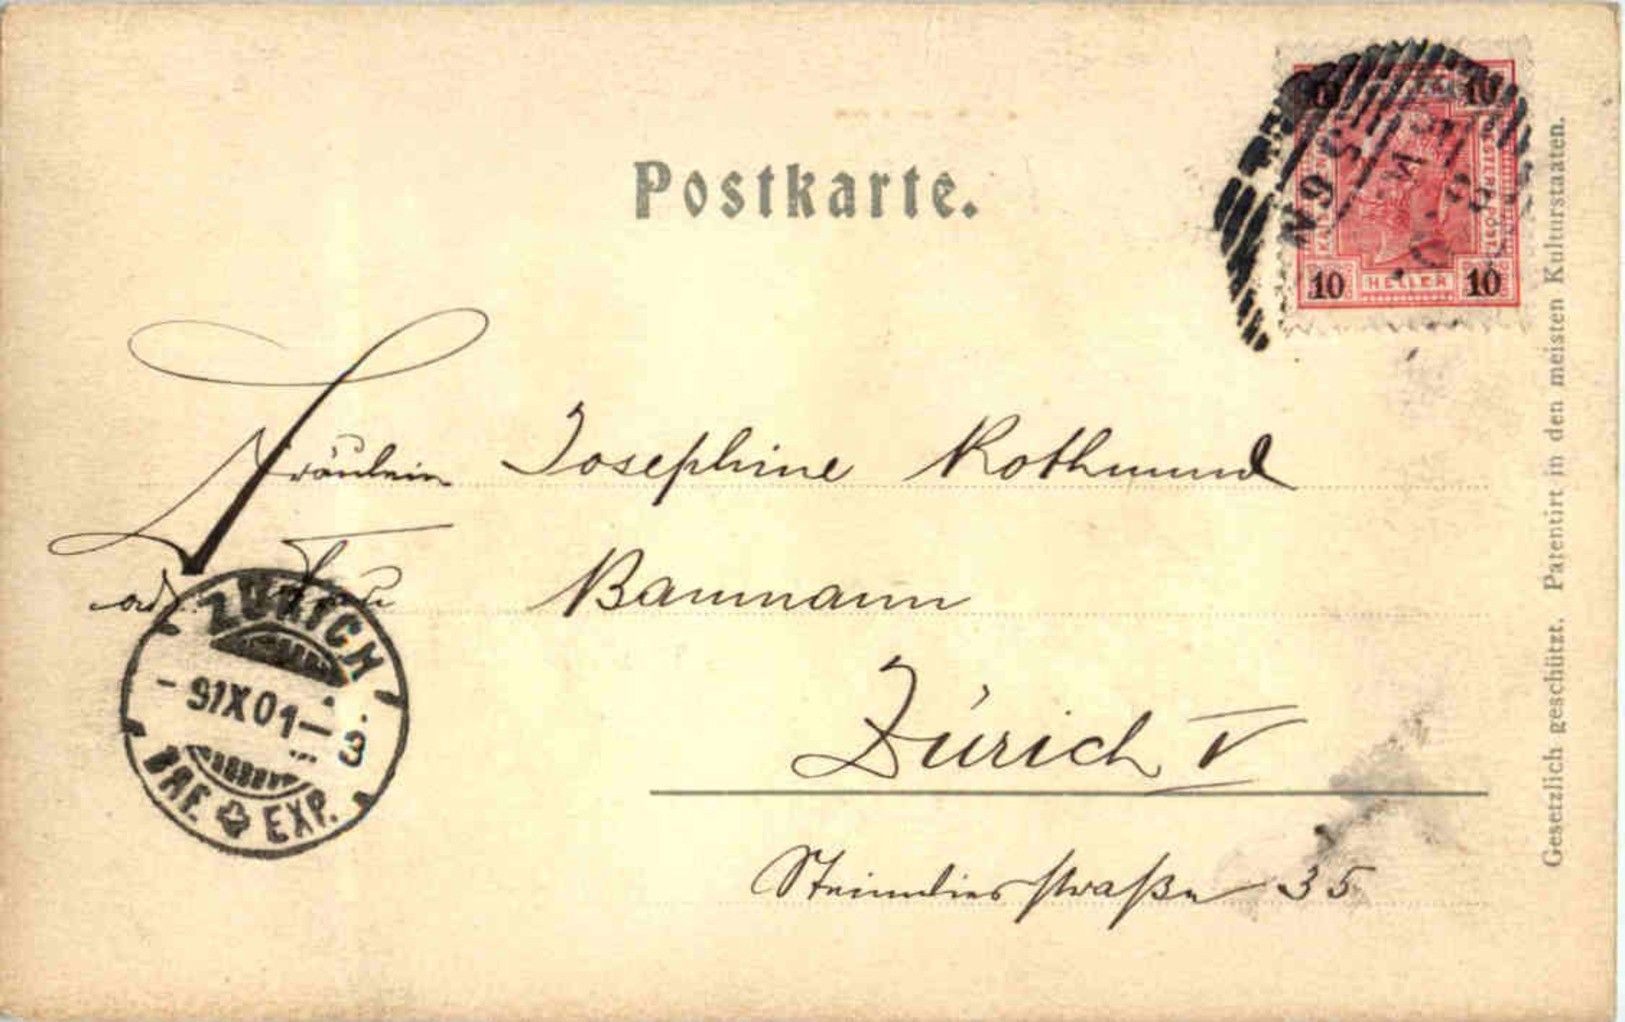 Postkarte.
10 10
10 HELLER 10
Fräulein Josephine Rothmund
Frau Baumann
Zürich V
35
ZÜRICH
- 9/X 01 - 3
BRF. EXP.
Gesetzlich geschützt. Patentirt in den meisten Kulturstaaten.